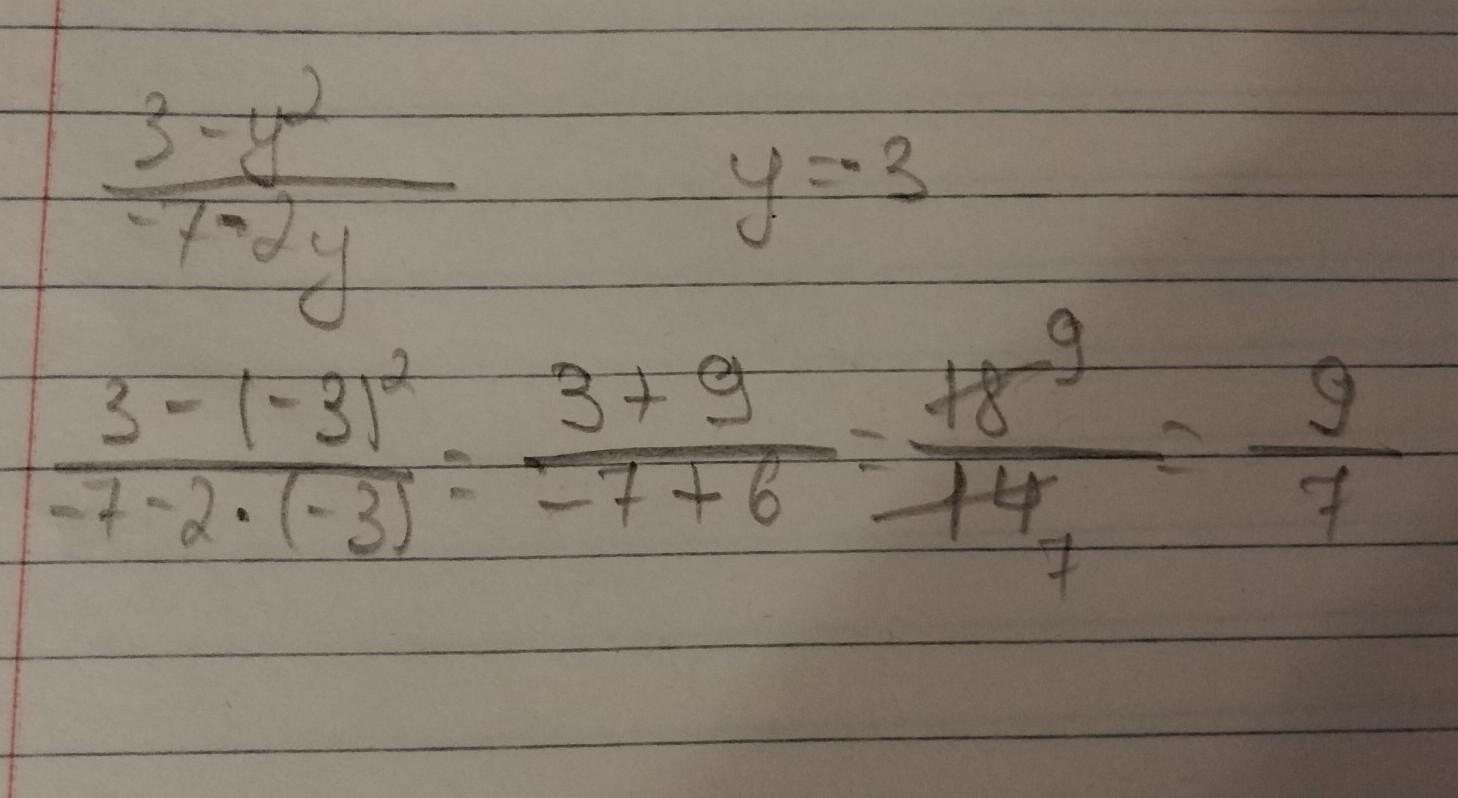 3-y² / -7-2y    y=-3
3-(-3)² / -7-2·(-3) = 3+9 / -7+6 = 18 9 / 14 7 = 9 / 7